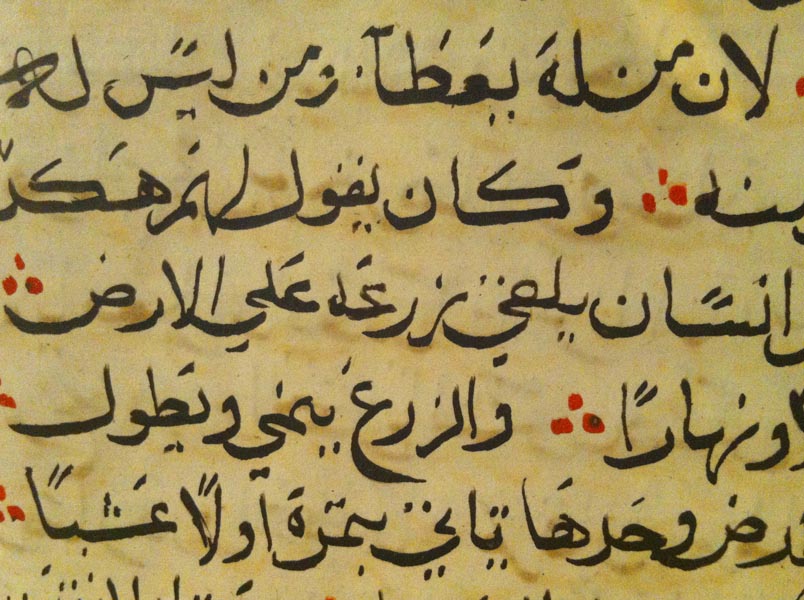 لان من له يعطآء ومن ليس له
منه وكان يقول لهم هكذ
انسان يلقي زرعه علي الارض
ونهارًا والزرع ينمي ويطول
رض وحدها تاتي بثمرة اولًا عشبًا